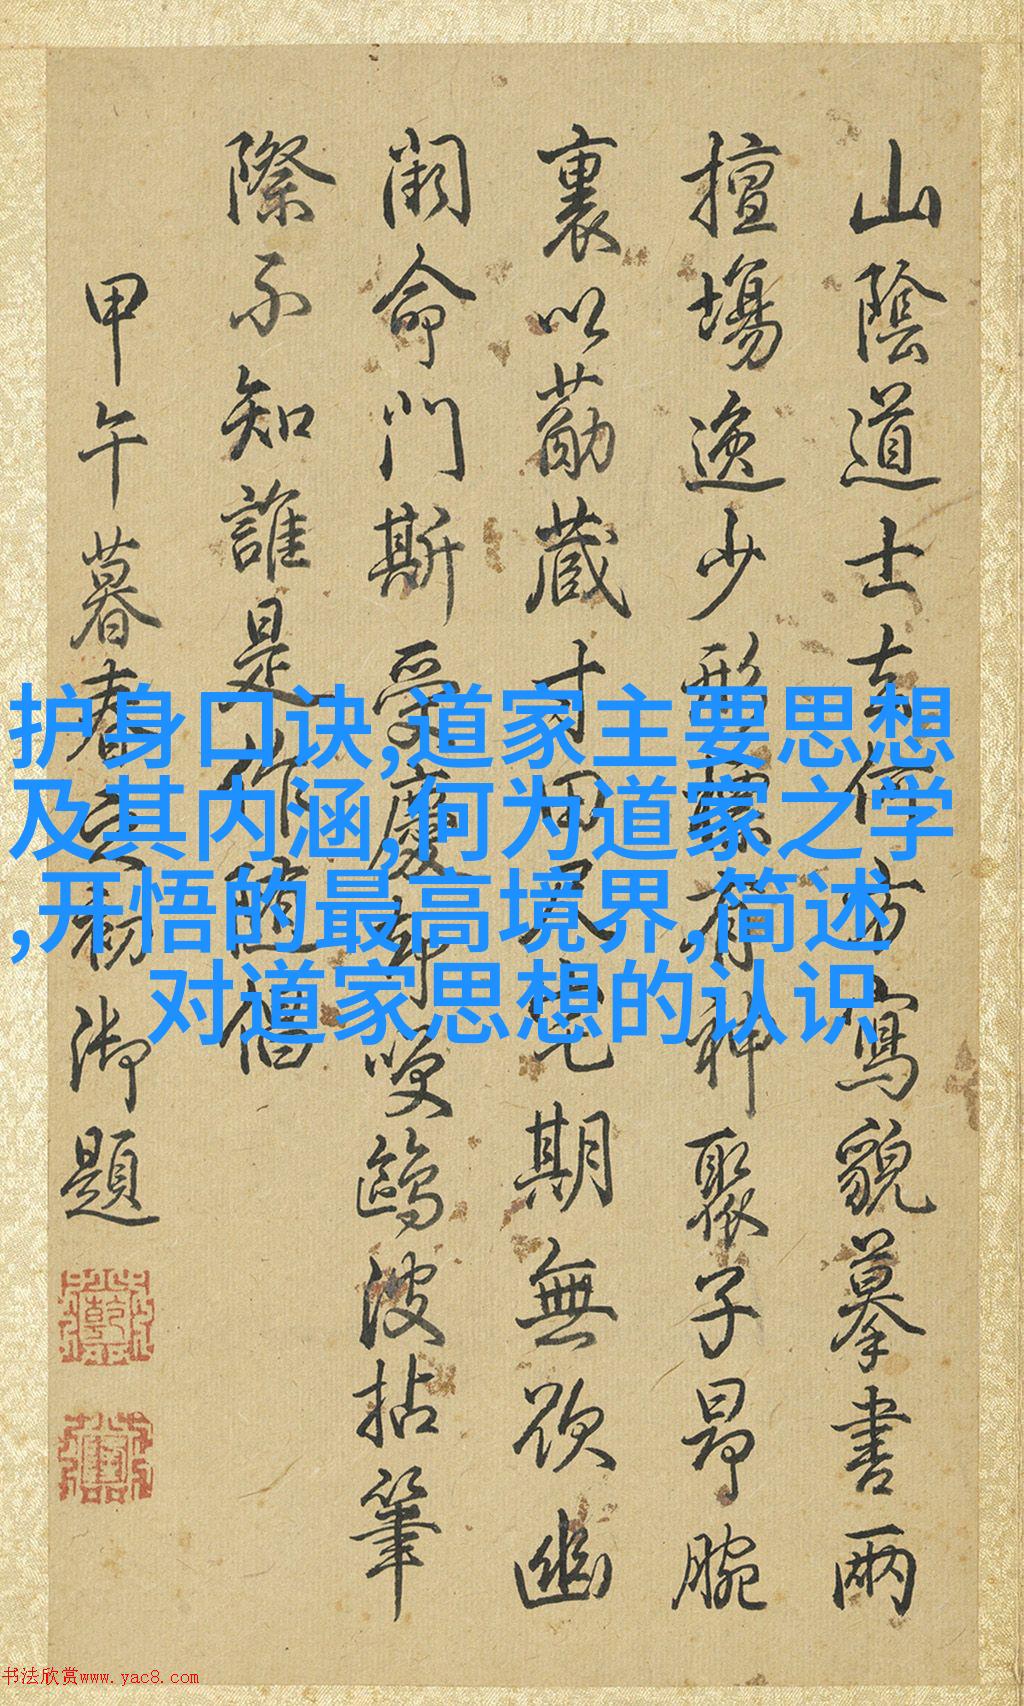 山陰道士去何方寫貌摹書兩
擅場逸少形摸有神聚子昂腕
裏以勛蔵寸田尺宅期無欲幽
闕命門斯受慶却笑鷁波拈筆
際不知誰是作随侣
甲午暮春之初御題
护身口诀,道家主要思想
及其内涵,何为道家之学
,开悟的最高境界,简述
对道家思想的认识
书法欣赏www.yac8.com